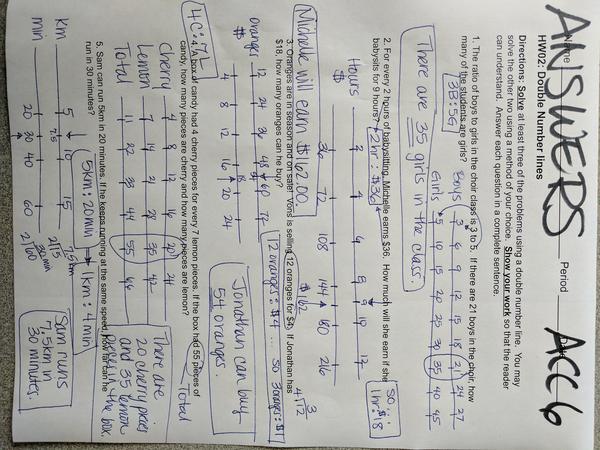 Name ANSWERS Period ACC 6
HW02: Double Number lines
Directions: Solve at least three of the problems using a double number line. You may
solve the other two using a method of your choice. Show your work so that the reader
can understand. Answer each question in a complete sentence.
1. The ratio of boys to girls in the choir class is 3 to 5. If there are 21 boys in the choir, how
many of the students are girls?
3B:5G
Boys 3 6 9 12 15 18 21 24 27
Girls 5 10 15 20 25 30 35 40 45
There are 35 girls in the class.
2. For every 2 hours of babysitting, Michelle earns $36. How much will she earn if she
babysits for 9 hours?
2hr:$36
so:
1hr:$18
Hours 2 4 6 8 9 10 12
$ 36 72 108 144 180 216
$162
Michelle will earn $162.00.
3. Oranges are in season and on sale! Vons is selling 12 oranges for $4. If Jonathan has
$18 how many oranges can he buy?
12 oranges:$4 ... so 3 oranges:$1
oranges 12 24 36 48 54 60 72
$ 4 8 12 16 18 20 24
Jonathan can buy
54 oranges.
4. A box of candy had 4 cherry pieces for every 7 lemon pieces. If the box had 55 pieces of
candy, how many pieces are cherry and how many pieces are lemon?
4C:7L
Total
Cherry 4 8 12 16 20 24
Lemon 7 14 21 28 35 42
Total 11 22 33 44 55 66
There are
20 cherry pieces
and 35 lemon
pieces in the box.
5. Sam can run 5km in 20 minutes. If he keeps running at the same speed, how far can he
run in 30 minutes?
5km:20min
1km:4min
Km 5 7.5 10 15
min 20 30 40 60
7.5km
30min
Sam runs
7.5km in
30 minutes.